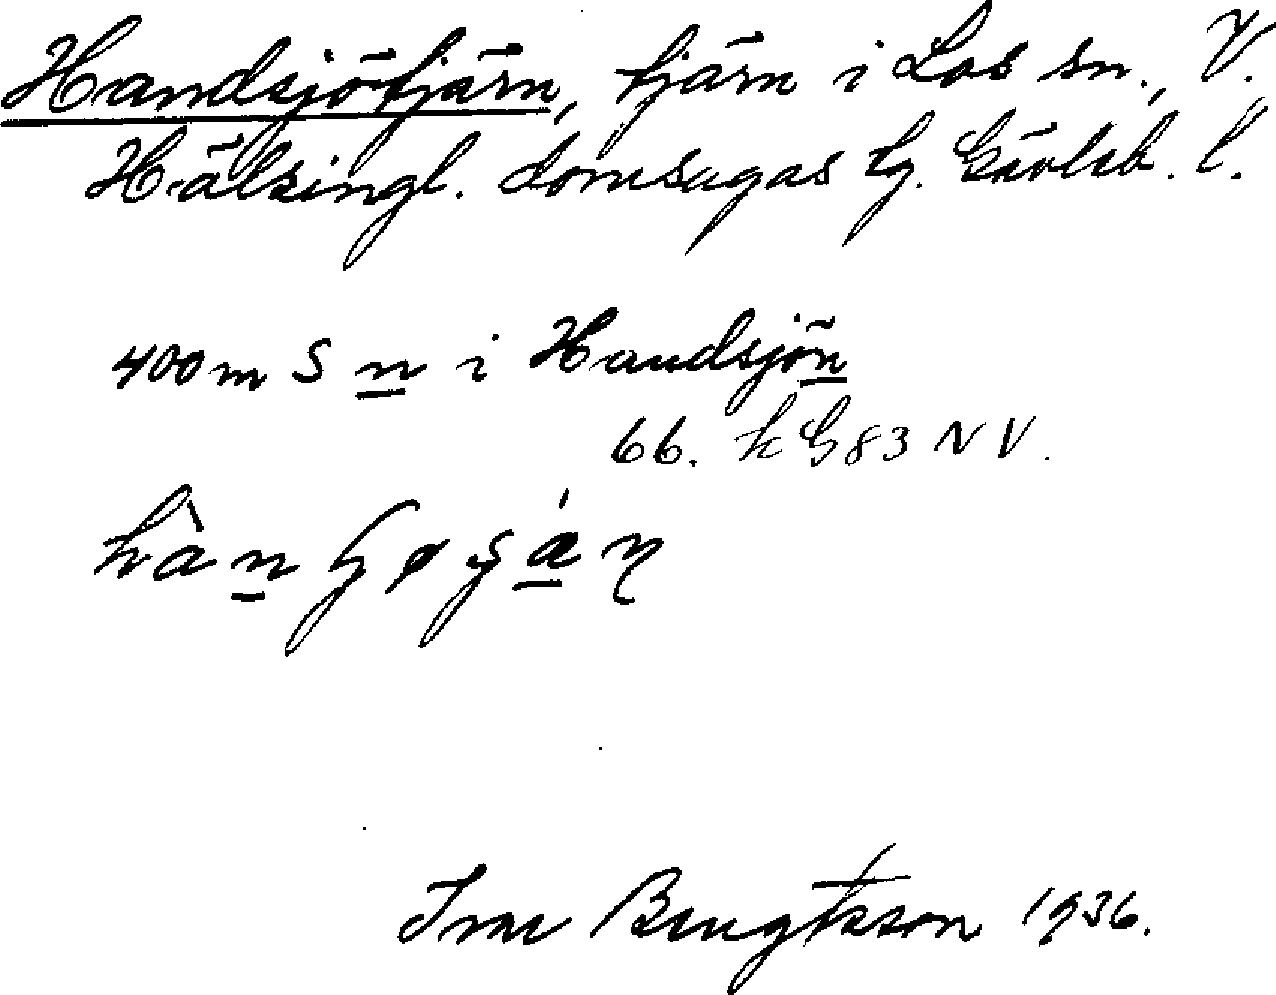 Handsjötjärn, tjärn i Los sn., V.
Hälsingl. domsagas tg. Gävleb. l.
400 m S n i Handsjön
66. kG83 NV.
Ivar Bengtsson 1936.